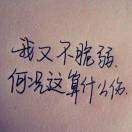 我又不脆弱
何况这算什么伤.